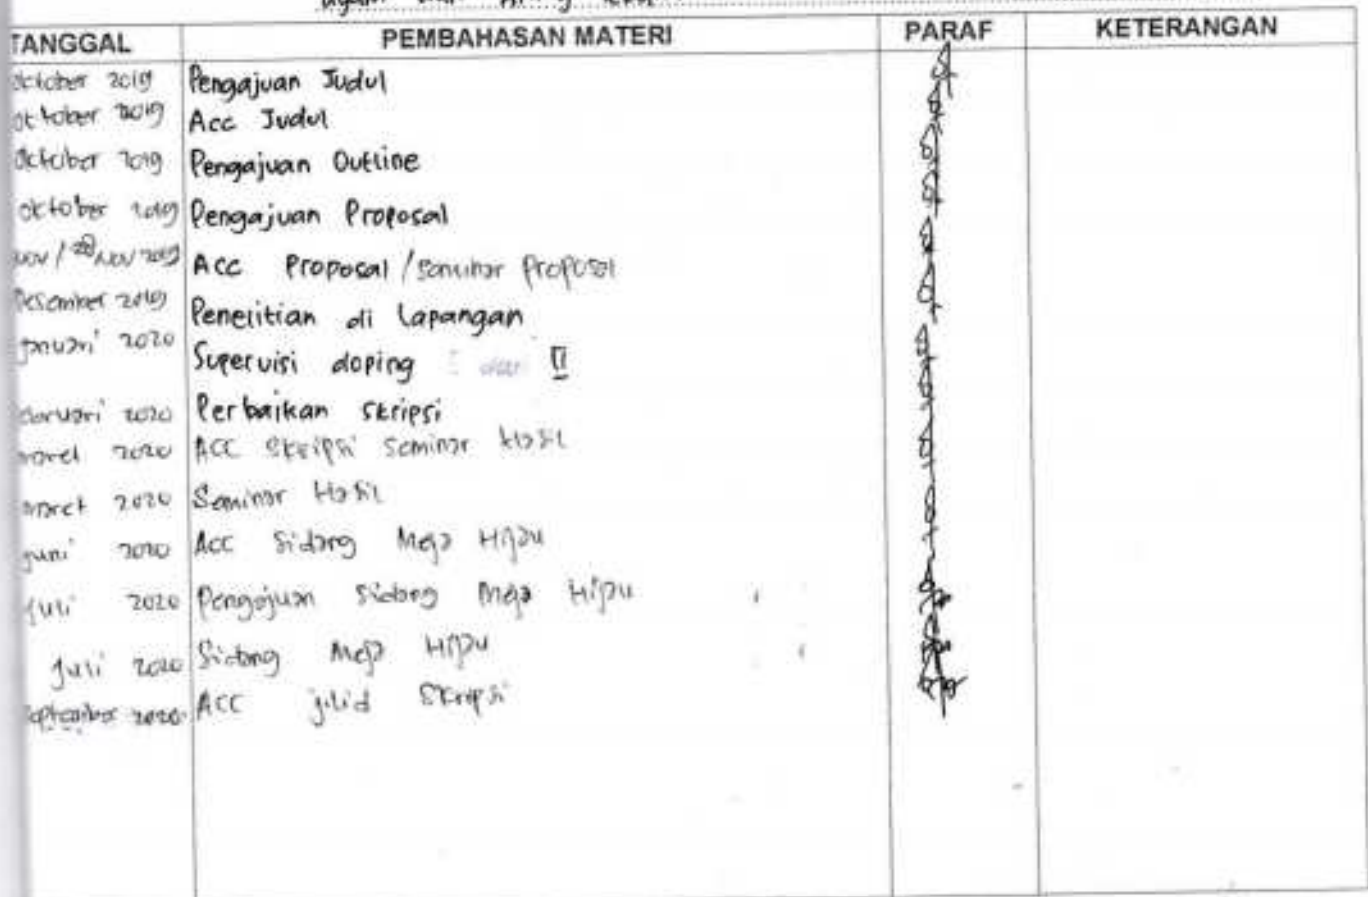 TANGGAL PEMBAHASAN MATERI PARAF KETERANGAN
oktober 2019 Pengajuan Judul
oktober 2019 Acc Judul
oktober 2019 Pengajuan Outline
oktober 2019 Pengajuan Proposal
Nov / 28 Nov 2019 Acc Proposal / seminar proposal
Desember 2019 Penelitian di Lapangan
Januari 2020 Supervisi doping I dan II
Februari 2020 Perbaikan skripsi
maret 2020 ACC Skripsi Seminar Hasil
maret 2020 Seminar Hasil
juni 2020 Acc Sidang Meja Hijau
juli 2020 Pengajuan Sidang Meja Hijau
juli 2020 Sidang Meja Hijau
September 2020 ACC jilid Skripsi